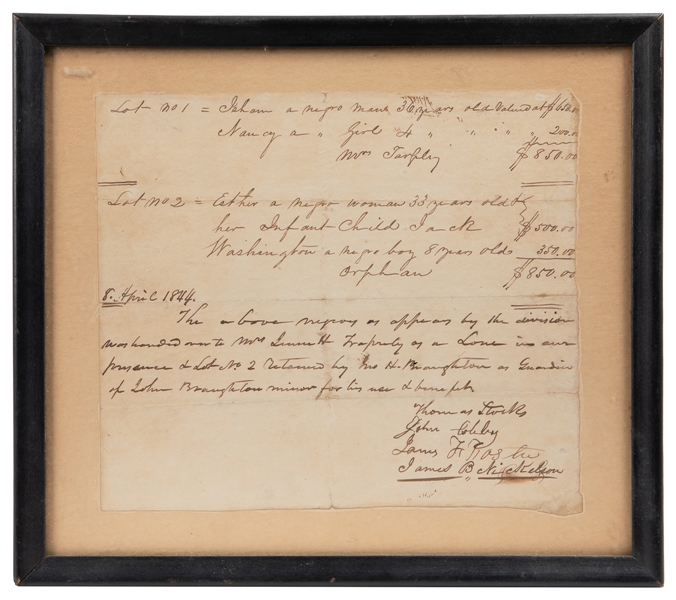 Lot no 1 = Isham a negro man 36 years old Valued at $650.00
Nancy a " Girl 4 " " " " 200.00
Mrs Tarpley $850.00
Lot no 2 = Esther a negro woman 33 years old &
her Infant Child Jack $500.00
Washington a negro boy 8 years old 350.00
Orphan $850.00
8. April 1844.
The above negros as appears by the division
was handed over to Mrs H as a Lone in our
presence & Lot No 2 Retained by H. Braughton as Guardin
of John Braughton minor for his use & benefit
Thomas Stocks
John Colby
James F
James B Nickelson